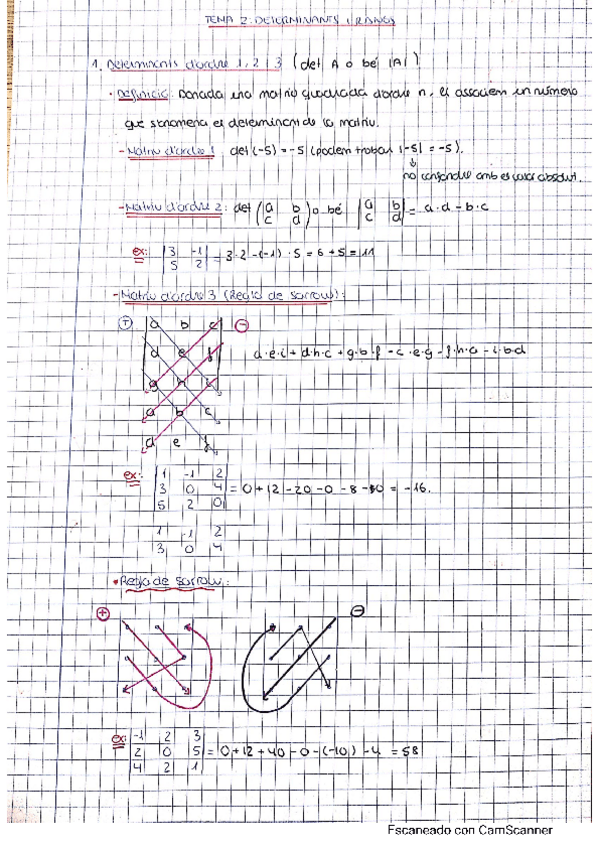 TEMA 2: DETERMINANTS I RANG
1. Determinants d'ordre 1, 2 i 3 (det A o bé |A|)
• Definició: Donada una matriu quadrada d'ordre n, li associem un número
que s'anomena el determinant de la matriu.
- Matriu d'ordre 1: det(-5) = -5 (podem trobar |-5| = -5).
↓
no confondre amb es valor absolut.
- Matriu d'ordre 2: det (a b c d) o bé |a b c d| = a·d - b·c
ex: |3 -1 5 2| = 3·2 - (-1)·5 = 6 + 5 = 11
- Matriu d'ordre 3 (Regla de Sarrow):
+ a b c -
d e f a·e·i + d·h·c + g·b·f - c·e·g - f·h·a - i·b·d
g h i
a b c
d e f
ex: 1 -1 2
3 0 4 = 0 + 12 - 20 - 0 - 8 - = -16.
5 2 0
1 -1 2
3 0 4
• Regla de Sarrow:
+ -
ex: -1 2 3
2 0 5 = 0 + 12 + 40 - 0 - (-10) - 4 = 58
4 2 1
Escaneado con CamScanner